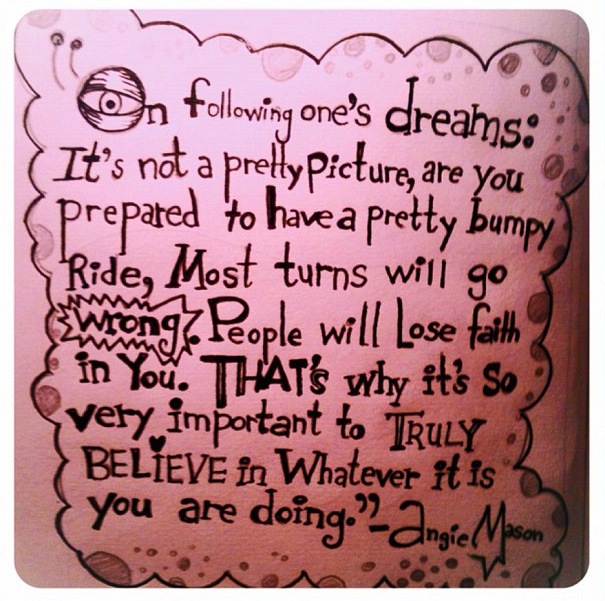 On following one's dreams:
It's not a pretty picture, are you
prepared to have a pretty bumpy
Ride, Most turns will go
wrong. People will Lose faith
in You. THAT's why it's So
very important to TRULY
BELIEVE in Whatever it is
you are doing." - Angie Mason